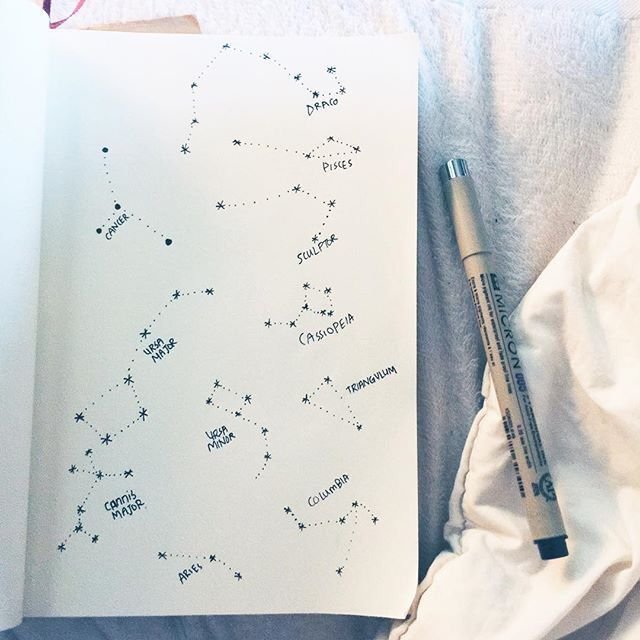 DRACO
PISCES
CANCER
SCULPTOR
CASSIOPEIA
URSA
MAJOR
TRIANGULUM
URSA
MINOR
COLUMBIA
CANNIS
MAJOR
ARIES
MICRON